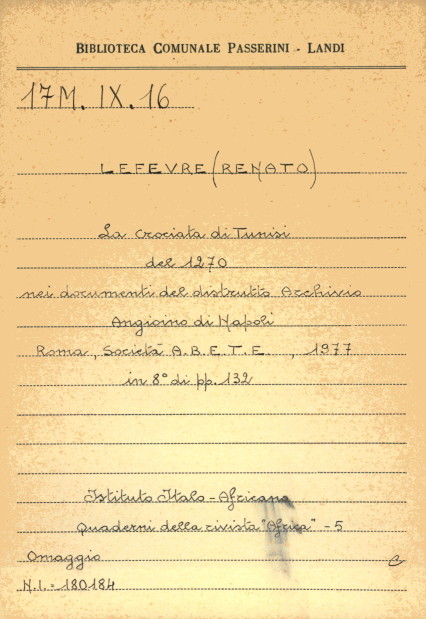 BIBLIOTECA COMUNALE PASSERINI - LANDI
17M. IX. 16
LEFEVRE (RENATO)
La crociata di Tunisi
del 1270
nei documenti del distrutto Archivio
Angioino di Napoli
Roma, Società A.B.E.T.E. , 1977
in 8° di pp. 132
Istituto Italo-Africano
Quaderni della rivista "Africa" - 5
Omaggio C
N.I. = 180184